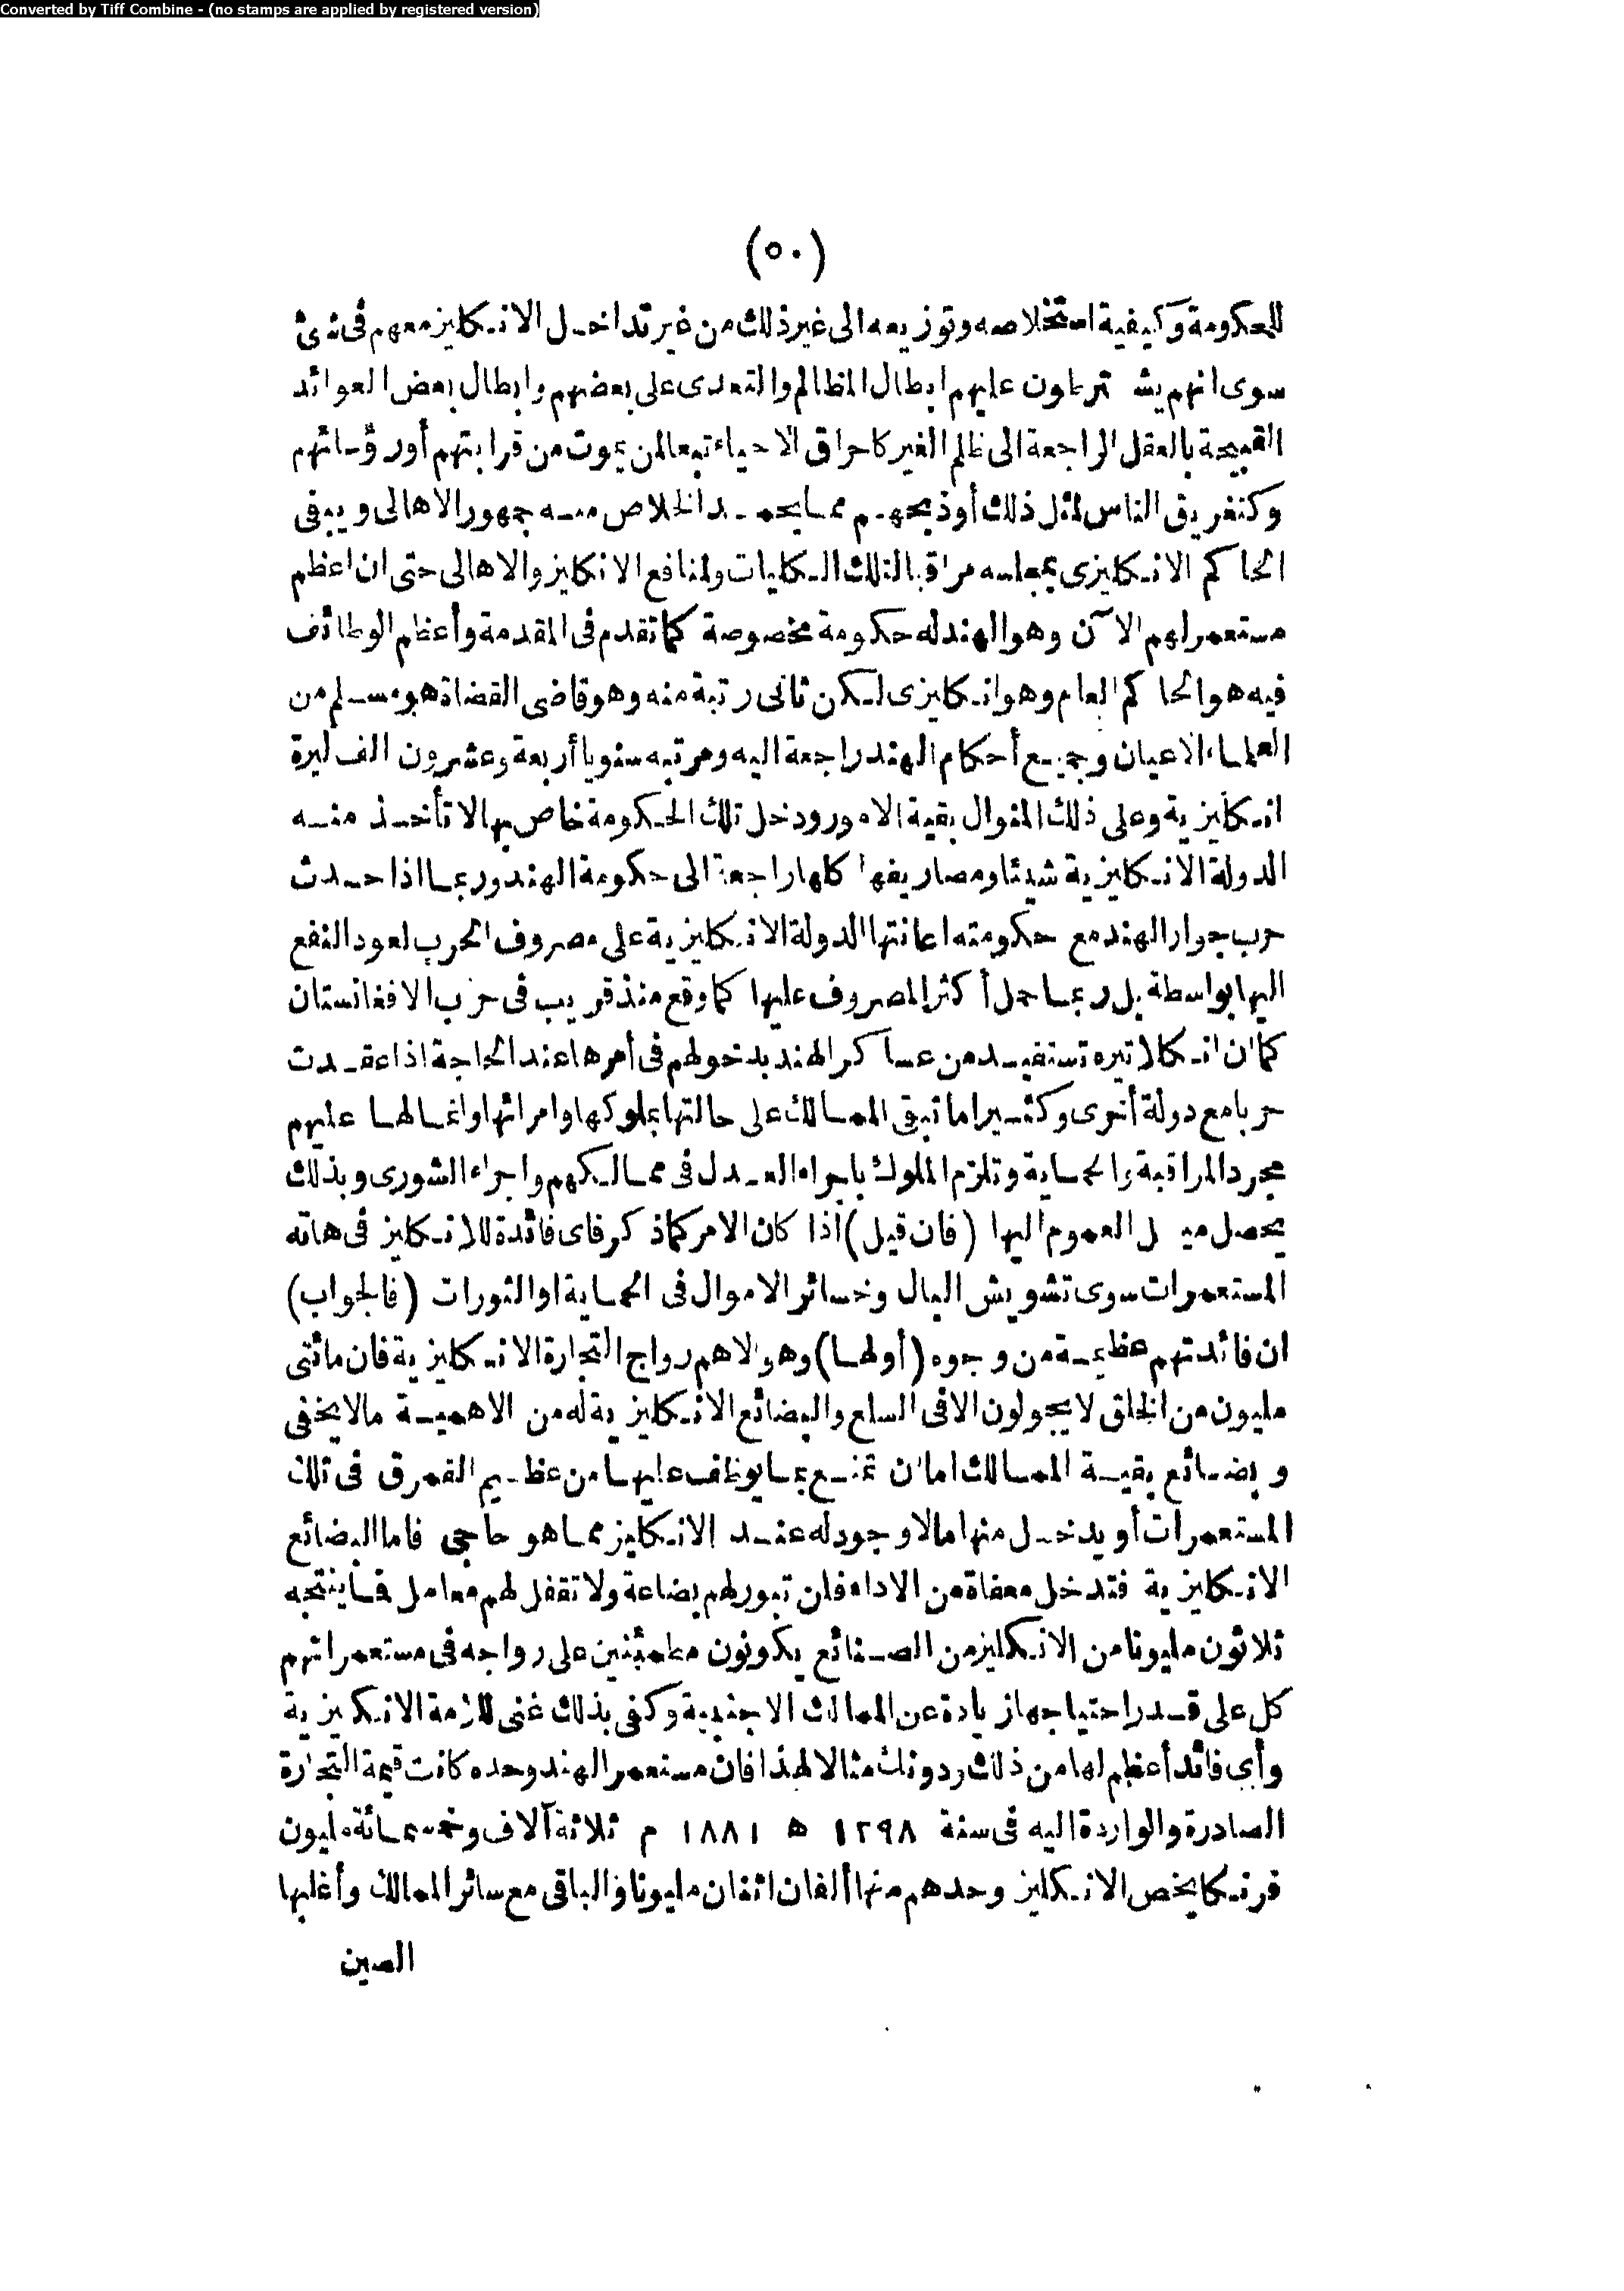 Converted by Tiff Combine - (no stamps are applied by registered version)
(٥٠)
للحكومة وكيفية استخلاصه وتوزيعه الى غير ذلك من غير تداخل الانكليز معهم فى شئ
سوى انهم يشترطون عليهم ابطال المظالم والتعدى على بعضهم وابطال بعض العوائد
القبيحة بالعقل الراجعة الى ظلم الغير كاحراق الاحياء تبعا لمن يموت من قرابتهم أو رؤسائهم
وكتغريق الناس لمثل ذلك أو ذبحهم مما يحمد الخلاص منه جمهور الاهالى ويبقى
الحاكم الانكليزى بمجلسه مراقبا لتلك الكليات ولمنافع الانكليز والاهالى حتى ان اعظم
مستعمراتهم الآن وهو الهند له حكومة مخصوصة كما تقدم فى المقدمة وأعظم الوظائف
فيه هو الحاكم العام وهو انكليزى لكن ثانى رتبة منه وهو قاضى القضاة هو مسلم من
العلماء الاعيان وجميع أحكام الهند راجعة اليه ومرتبه سنويا أربعة وعشرون الف ليرة
انكليزية وعلى ذلك المنوال بقية الامور ودخل تلك الحكومة خاص بها لا تأخذ منه
الدولة الانكليزية شيئا ومصاريفها كلها راجعة الى حكومة الهند وربما اذا حدث
حرب بجوار الهند مع حكومته اعانتها الدولة الانكليزية على مصروف الحرب لعود النفع
اليها بواسطة بل ربما حمل أكثر المصروف عليها كما وقع منذ قريب فى حرب الافغانستان
كما ان انكلاتيره تستفيد من عساكر الهند بدخولهم فى أمرها عند الحاجة اذا عقدت
حربا مع دولة أخرى وكثيرا ما تبقى الممالك على حالتها بملوكها وامرائها وانما لها عليهم
مجرد المراقبة والحماية وتلزم الملوك باجراء العدل فى ممالكهم واجراء الشورى وبذلك
يحصل ميل العموم اليها (فان قيل) اذا كان الامر كما ذكر فاى فائدة للانكليز فى هاته
المستعمرات سوى تشويش البال وخسائر الاموال فى الحماية او الثورات (فالجواب)
ان فائدتهم عظيمة من وجوه (أولها) وهو الاهم رواج التجارة الانكليزية فان مائتى
مليون من الخلق لا يجولون الا فى السلع والبضائع الانكليزية له من الاهمية ما لا يخفى
وبضائع بقية الممالك اما ان تمنع بما يوظف عليها من عظيم القمرق فى تلك
المستعمرات أو يدخل منها ما لا وجود له عند الانكليز مما هو حاجى فاما البضائع
الانكليزية فتدخل معفاة من الاداء فلن تبور لهم بضاعة ولا تقفل لهم معامل فما ينتجه
ثلاثون مليونا من الانكليز من الصنائع يكونون مطمئنين على رواجه فى مستعمراتهم
كل على قدر احتياجها زيادة عن الممالك الاجنبية وكفى بذلك غنى للامة الانكليزية
وأى فائد أعظم لها من ذلك ودونك مثالا لهذا فان مستعمر الهند وحده كانت قيمة التجارة
الصادرة والواردة اليه فى سنة ١٢٩٨ ه ١٨٨١ م ثلاثة آلاف وخمسمائة مليون
فرنكا يخص الانكليز وحدهم منها ألفان اثنان مليونا والباقى مع سائر الممالك وأغلبها
الصين